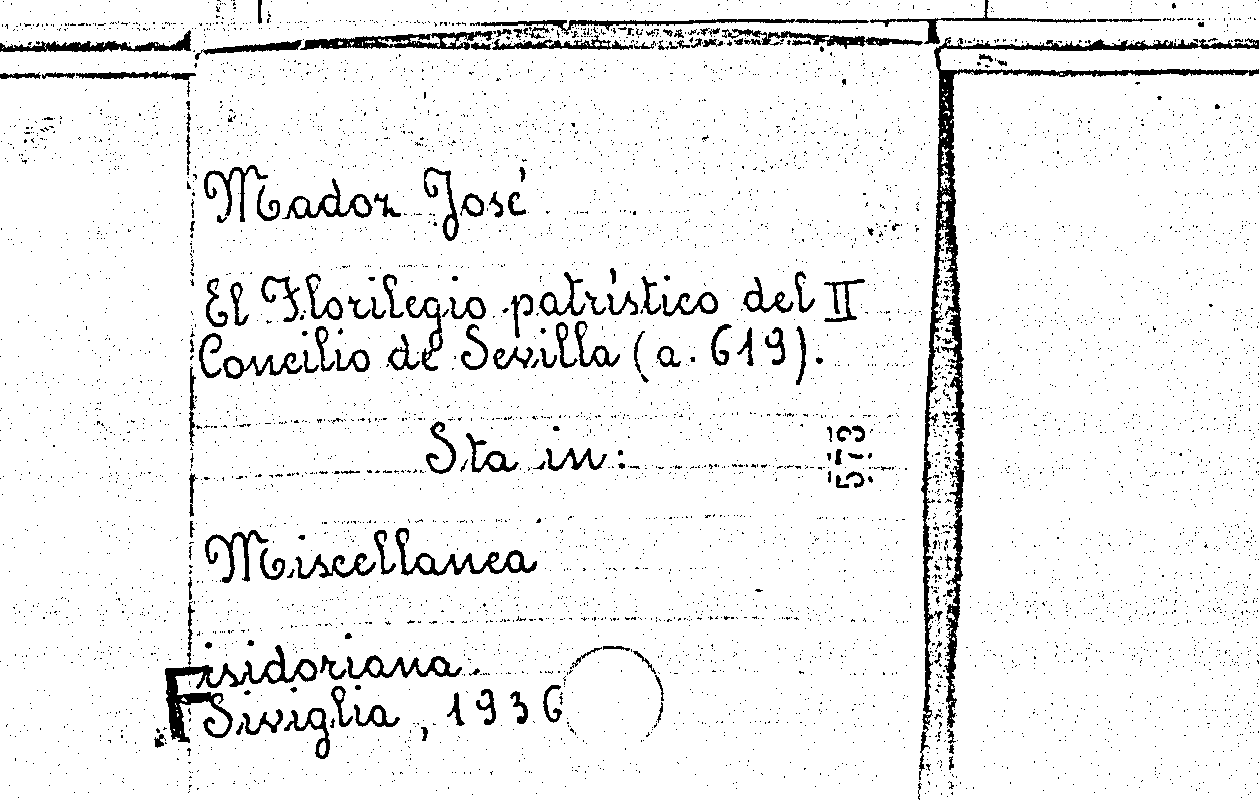 Madoz José
El Florilegio patrístico del II
Concilio de Sevilla (a. 619).
Sta in:
573
Miscellanea
isidoriana.
F
Siviglia, 1936